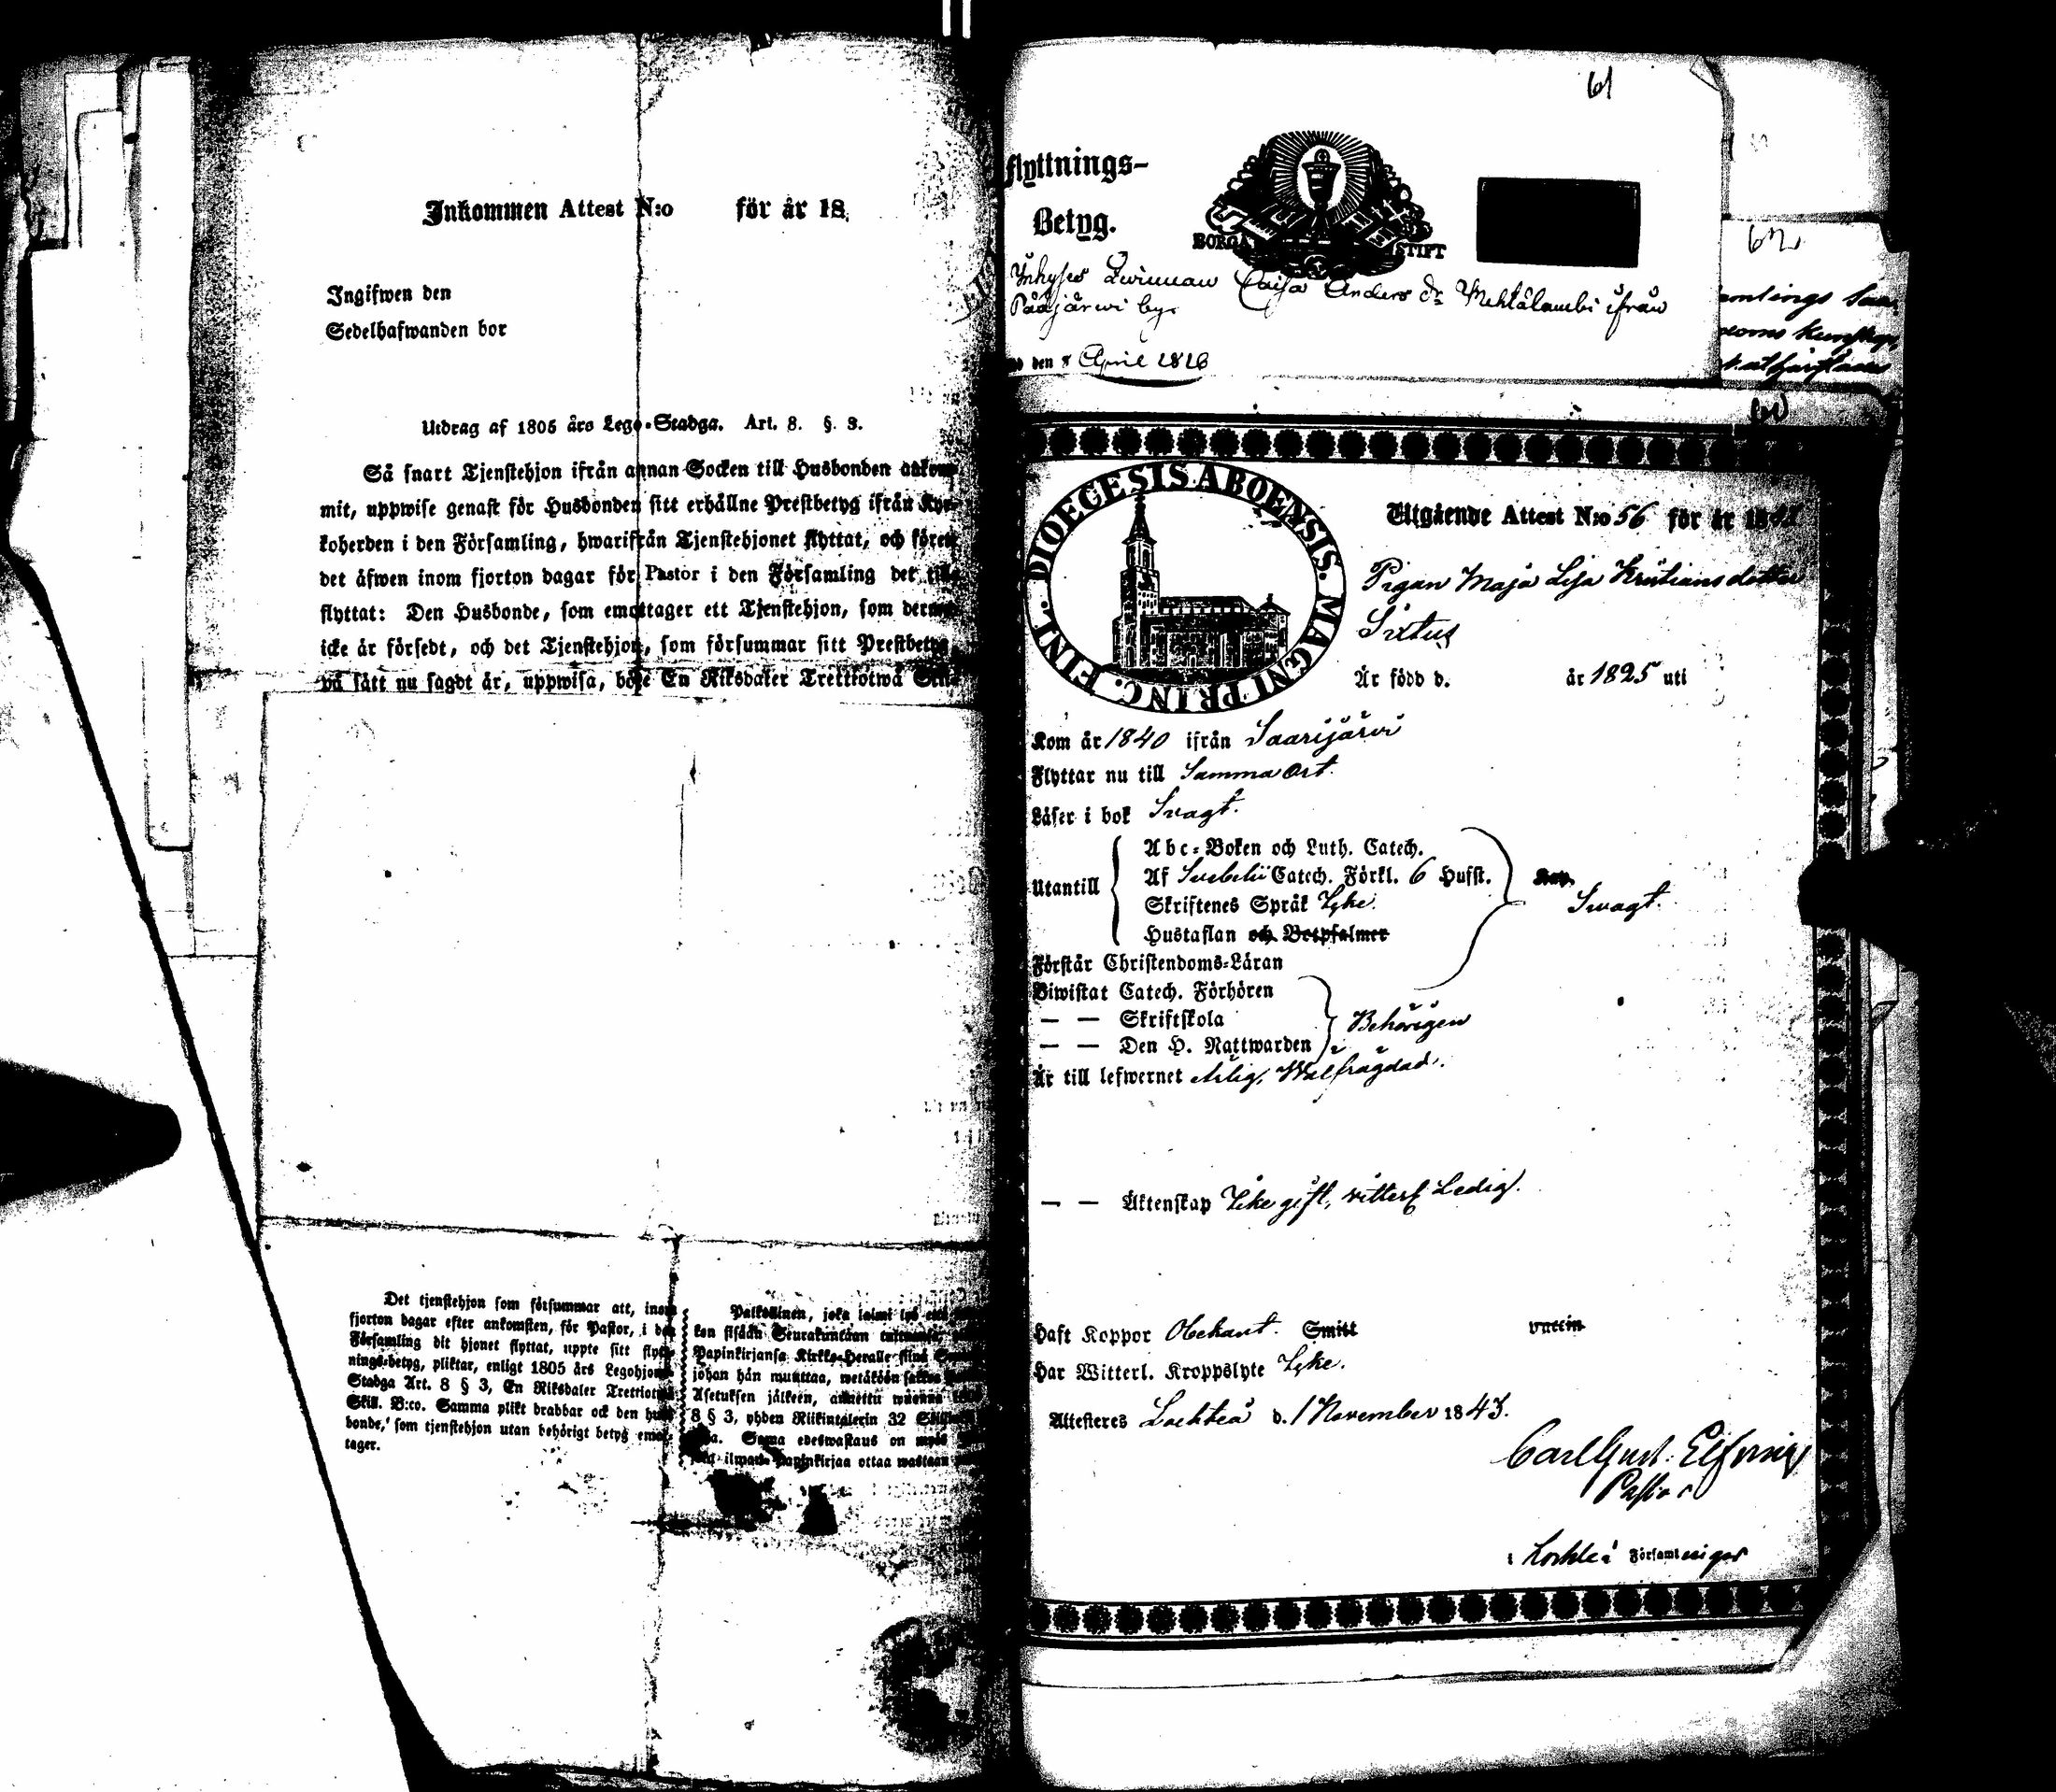 Inkommen Attest N:o för år 18
Ingifwen den
Sedelhafwanden bor
Utdrag af 1805 års Lego-Stadga. Art. 8. §. 3.
Så snart Tjenstehjon ifrån annan Socken till Husbonden
mit, uppwise genast för Husbonden sitt erhållne Prestbetyg ifrån Kyr-
koherden i den Församling, hwarifrån Tjenstehjonet flyttat, och
det äfwen inom fjorton dagar för Pastor i den Församling det
flyttat: Den Husbonde, som emottager ett Tjenstehjon, som
icke är försedt, och det Tjenstehjon, som försummar sitt Prestbetyg
på sätt nu sagdt är, uppwisa, böte En Riksdaler Trettiotwå
Det tjenstehjon som försummar att, inom
fjorton dagar efter ankomsten, för Pastor, i den
Församling dit hjonet flyttat, uppte sitt flytt-
nings-betyg, pliktar, enligt 1805 års Legohjons
Stadga Art. 8 § 3, En Riksdaler Trettiotwå
Skill. B:co. Samma plikt drabbar ock den hus-
bonde, som tjenstehjon utan behörigt betyg emot-
tager.
Palkollinen, joka
kon sisään Seurakuntaan
Papinkirjansa Kirkko-Herralle siinä
johan hän muuttaa, wetäköön
Asetuksen jälkeen, annettu wuonna
8 § 3, yhden Riikintalerin 32
Sama edeswastaus on myös
ilman Papinkirjaa ottaa wastaan
61
Flyttnings-
Betyg.
BORGÅ STIFT
Inhyses Qwinnan Caisa Anders dr Mehtälambi ifrån
Pääjärwi by.
den 8 April 1826
62
DIOEGESIS ABOENSIS. MAGNI PRINC. FINL.
Utgående Attest N:o 56 för år 18
Pigan Maja Lisa Kristiansdotter
Sixtus
Är född d. år 1825 uti
Kom år 1840 ifrån Saarijärvi
Flyttar nu till Samma Ort.
Läser i bok Svagt.
Utantill
Abc-Boken och Luth. Catech.
Af Svebelii Catech. Förkl. 6 Hufst.
Skriftenes Språk Icke.
Hustaflan och Botpsalmer
Swagt.
Förstår Christendoms-Läran
Biwistat Catech. Förhören
— — Skriftskola
— — Den H. Nattwarden
Behörigen
Är till lefwernet Ärlig, Wälfrägdad.
— — Äktenskap Icke gift, vitterl. Ledig.
Haft Koppor Obekant. Smitt vaccin
Har Witterl. Kroppslyte Icke.
Attesteres Lochteå d. 1 November 1843.
Carl Gust. Elfving
Pastor
i Lochteå Församlingar